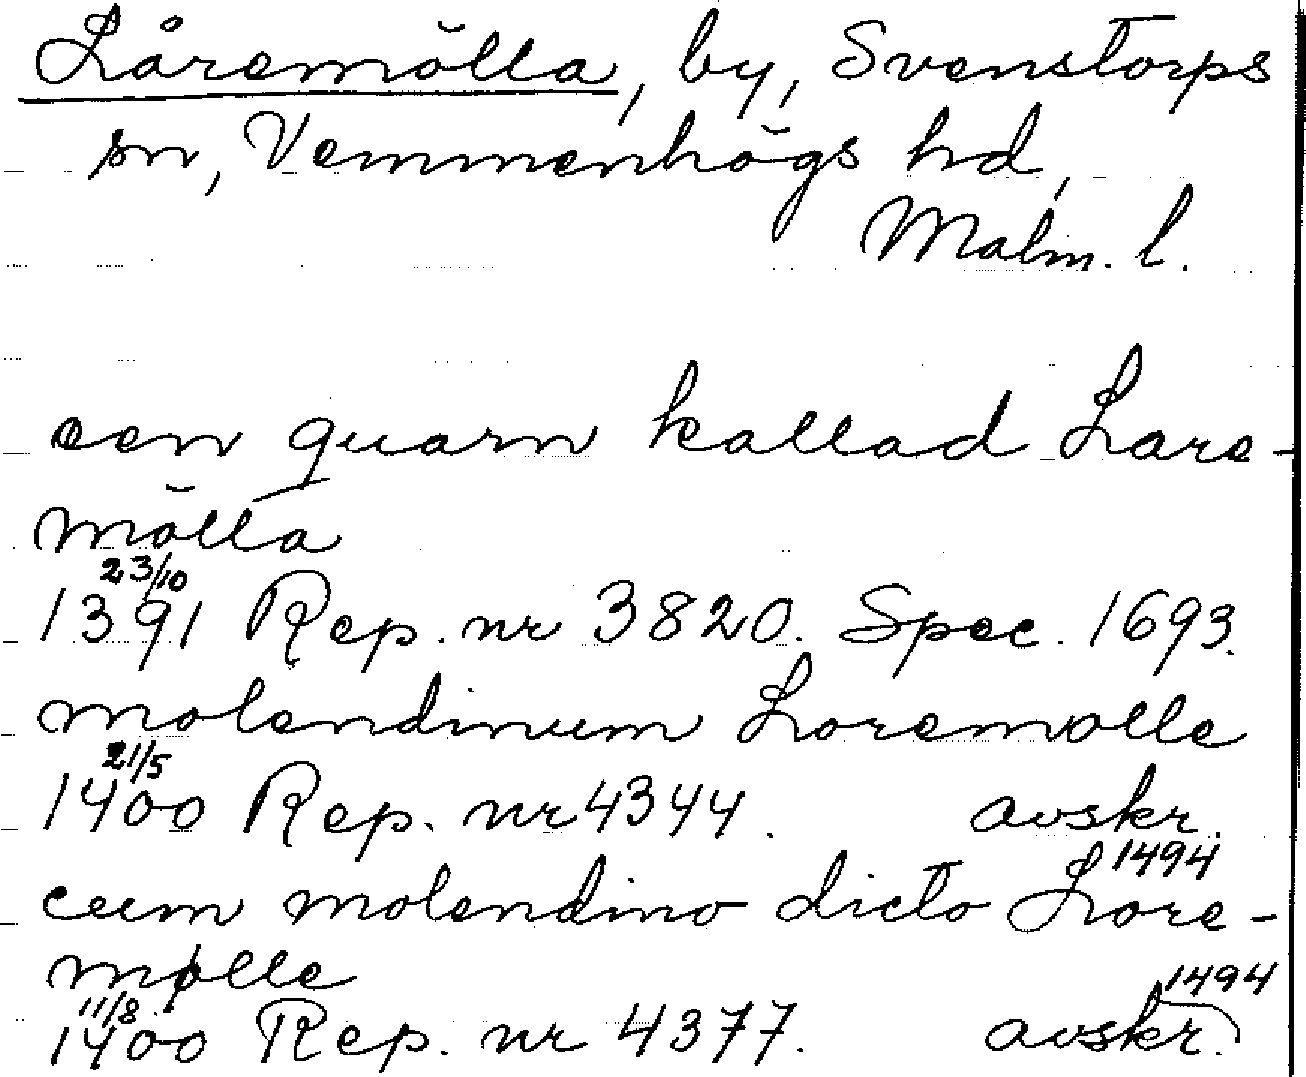 Låremölla, by, Svenstorps
sn, Vemmenhögs hd,
Malm. l.
een quarn kallad Lare-
mölla
23/10
1391 Rep. nr 3820. Spec. 1693.
molendinum Loremolle
21/5
1400 Rep. nr 4344. avskr. 1494
cum molendino dicto Lore-
mølle
11/8
1400 Rep. nr 4377. avskr. 1494